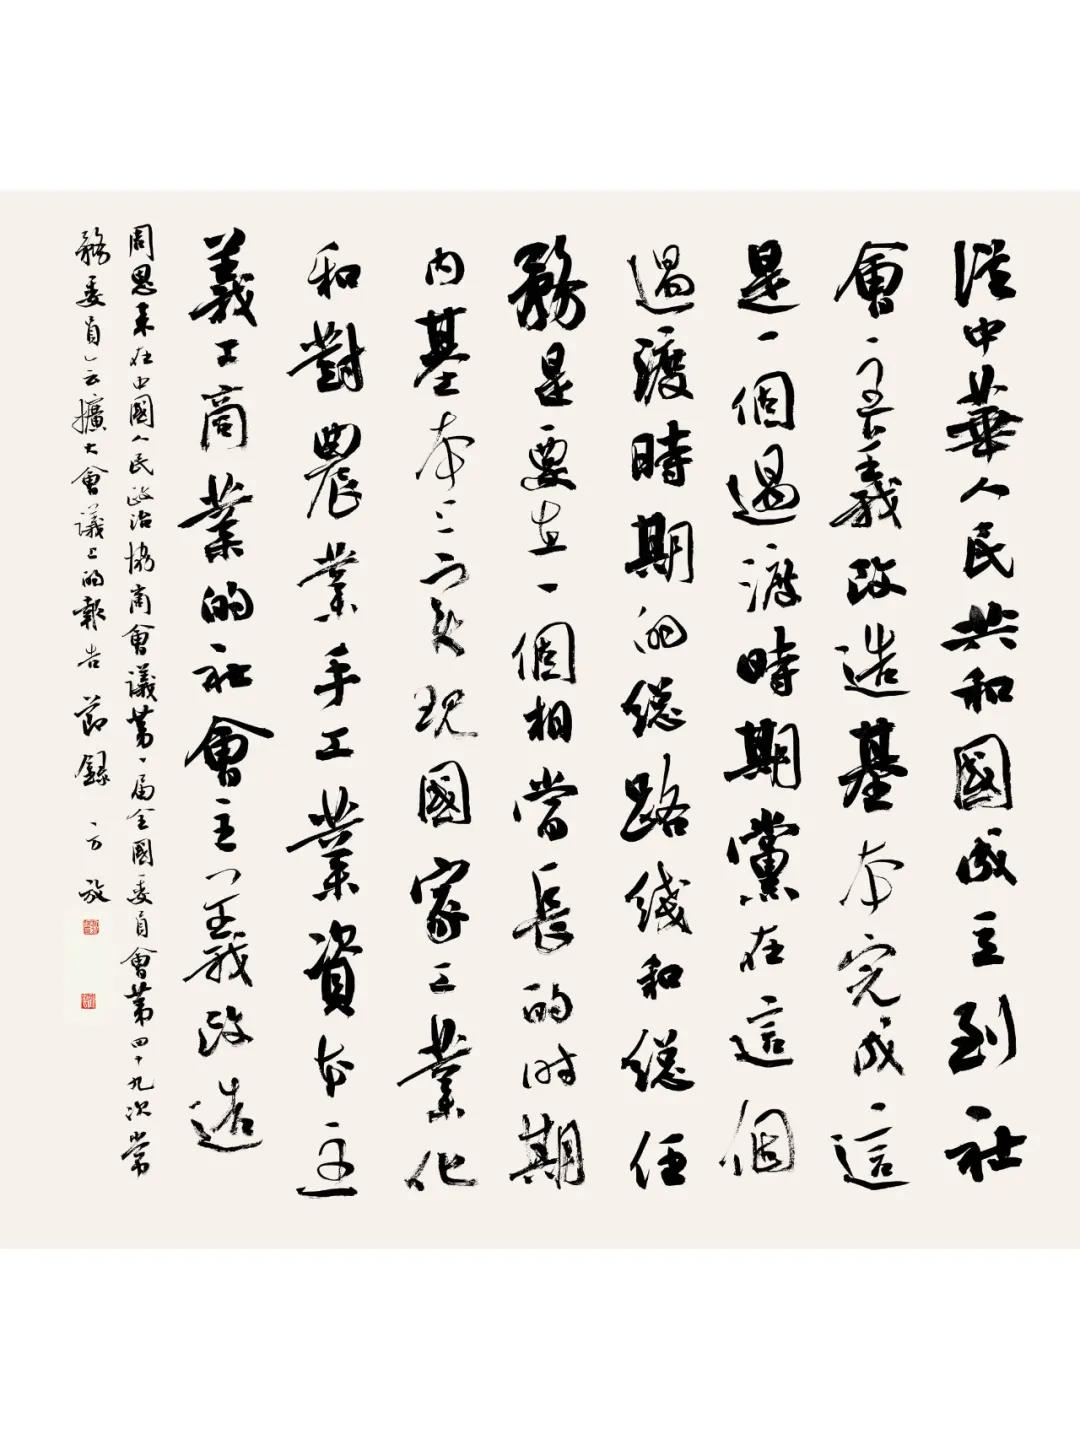 從中華人民共和國成立到社
會主義改造基本完成這
是一個過渡時期黨在這個
過渡時期的總路綫和總任
務是要在一個相當長的时期
内基本上实现國家工業化
和對農業手工業資本主
義工商業的社會主義改造
周恩来在中國人民政治協商會議第一届全國委員會第四十九次常
務委員会擴大會議上的報告 節録 方放